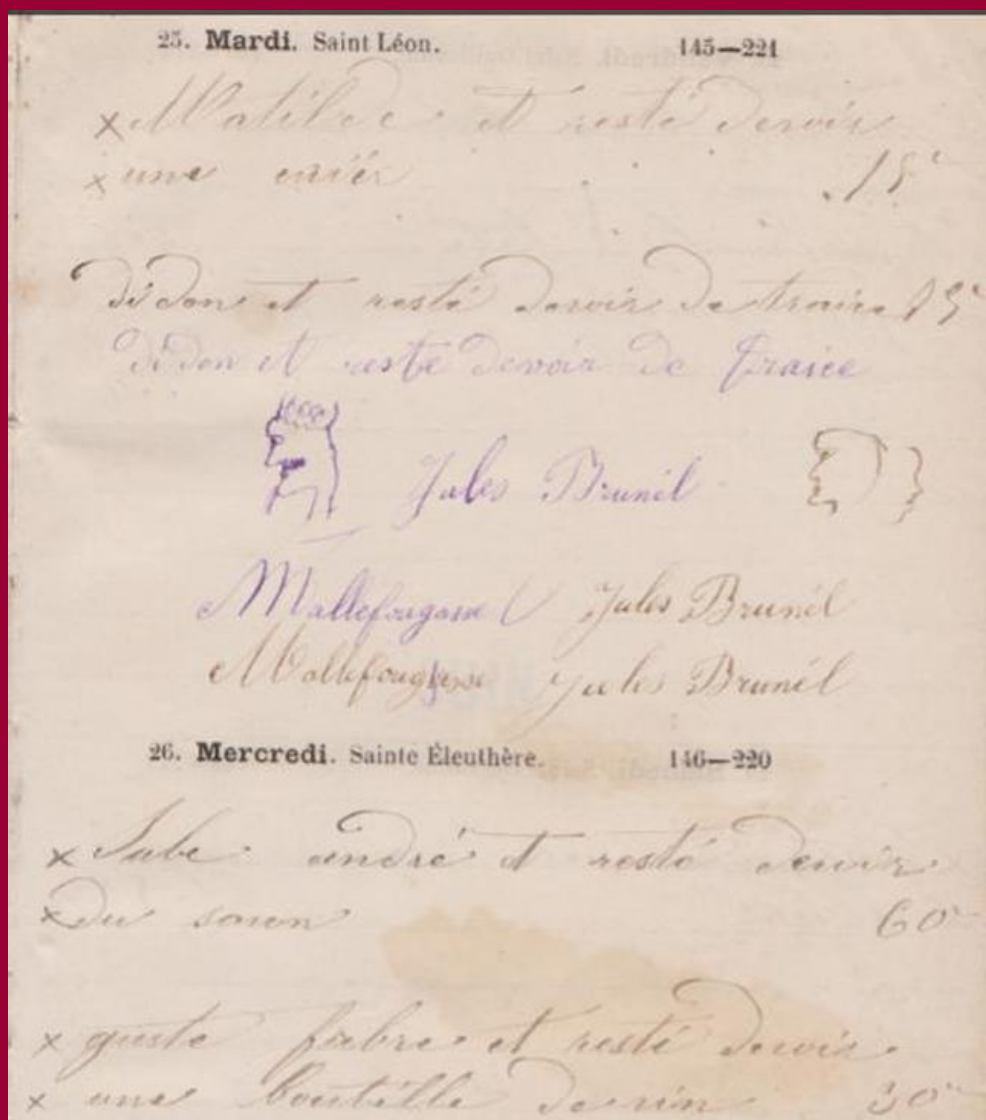 25. Mardi. Saint Léon. 145—221
x Matilde et resté devoir
x une 15c
didon et resté devoir de 15
didon et resté devoir de
Jules Brunél
Mallefougasse Jules Brunél
Mallefougasse Jules Brunél
26. Mercredi. Sainte Éleuthère. 146—220
x Jube andré et resté devoir
x du savon 60
x guste fabre et resté devoir
x une boutêlle de vin 30